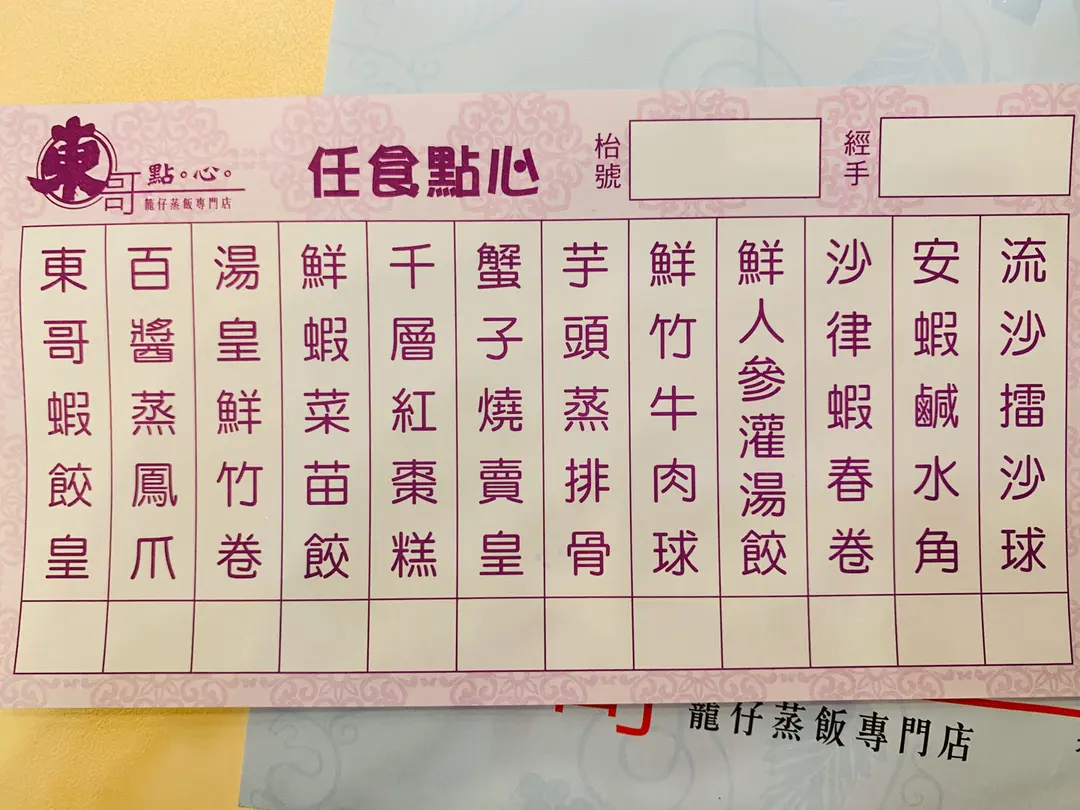 東哥點。心。
籠仔蒸飯專門店
任食點心
枱號
經手
東哥蝦餃皇
百醬蒸鳳爪
湯皇鮮竹卷
鮮蝦菜苗餃
千層紅棗糕
蟹子燒賣皇
芋頭蒸排骨
鮮竹牛肉球
鮮人參灌湯餃
沙律蝦春卷
安蝦鹹水角
流沙擂沙球
籠仔蒸飯專門店